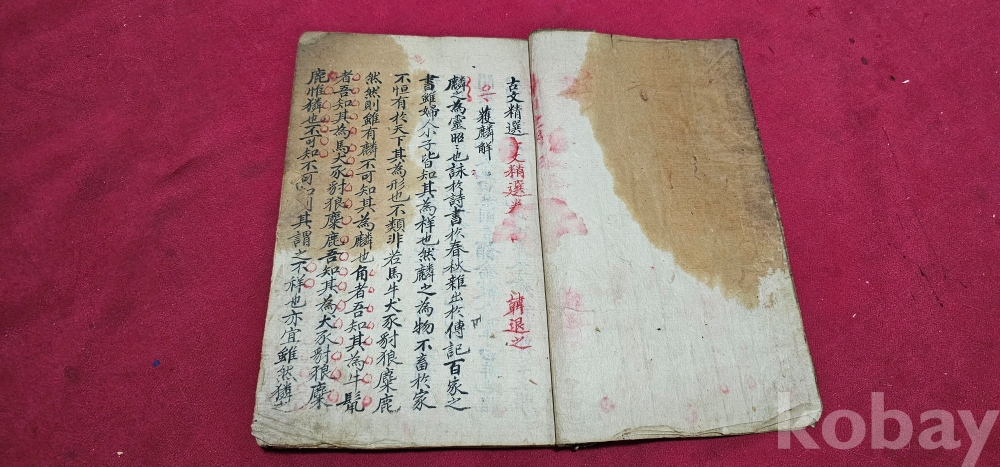 古文精選 古文精選 韓退之
獲麟解
麟之為靈昭〻也詠於詩書於春秋雜出於傳記百家之
書雖婦人小子皆知其為祥也然麟之為物不畜於家
不恒有於天下其為形也不類非若馬牛犬豕豺狼麋鹿
然然則雖有麟不可知其為麟也角者吾知其為牛鬣
者吾知其為馬犬豕豺狼麋鹿吾知其為犬豕豺狼麋
鹿惟獜也不可知不可則其謂之不祥也亦宜雖然獜
kobay